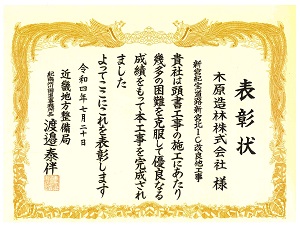 表彰状
木原造林株式会社 様
新宮紀宝道路新宮北IC改良他工事
貴社は頭書工事の施工にあたり
幾多の困難を克服して優良なる
成績をもって本工事を完成され
ました
よってここにこれを表彰します
令和四年七月二十日
近畿地方整備局
紀南河川国道事務所長 渡邉泰伴